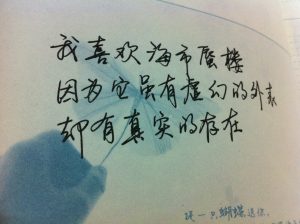 我喜欢海市蜃楼
因为它虽有虚幻的外表
却有真实的存在
一只蝴蝶送你